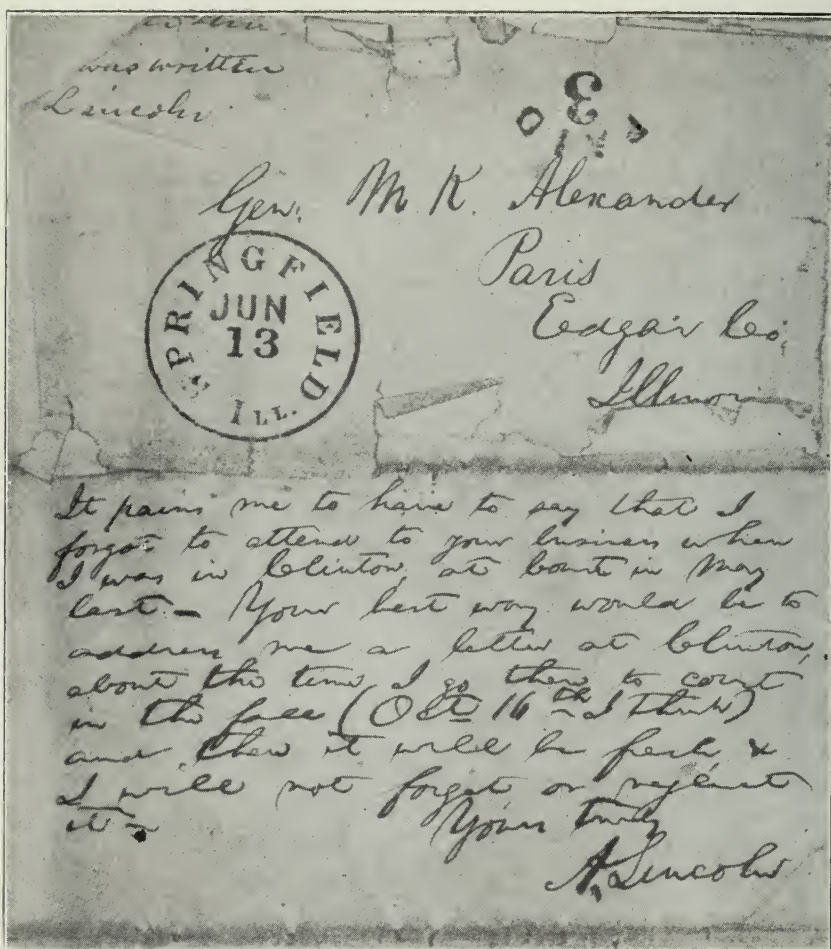 was written
Lincoln
3
Gen. M. K. Alexander
Paris
Edgar Co.
Illinois
SPRINGFIELD
JUN
13
ILL.
It pains me to have to say that I
forgot to attend to your business when
I was in Clinton, at court in May
last – Your best way would be to
address me a letter at Clinton,
about the time I go there to court
in the fall (Oct 16th I think)
and then it will be fresh, &
I will not forget or neglect
it –
Yours truly
A. Lincoln